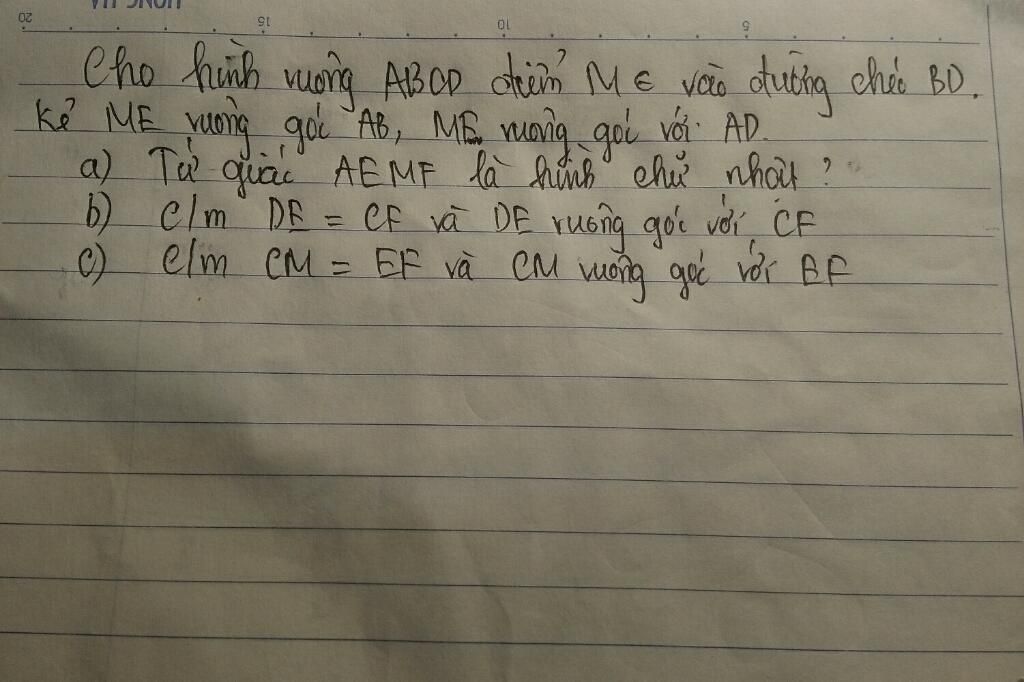 20 15 10 5
Cho hình vuông ABCD điểm M ∈ vào đường chéo BD.
Kẻ ME vuông góc AB, MF vuông góc với AD.
a) Tứ giác AEMF là hình chữ nhật?
b) C/m DE = CF và DE vuông góc với CF
c) C/m CM = EF và CM vuông góc với EF